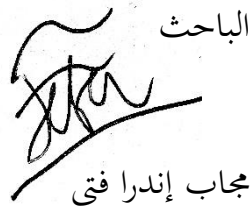 الباحث
مجاب إندرا فتى